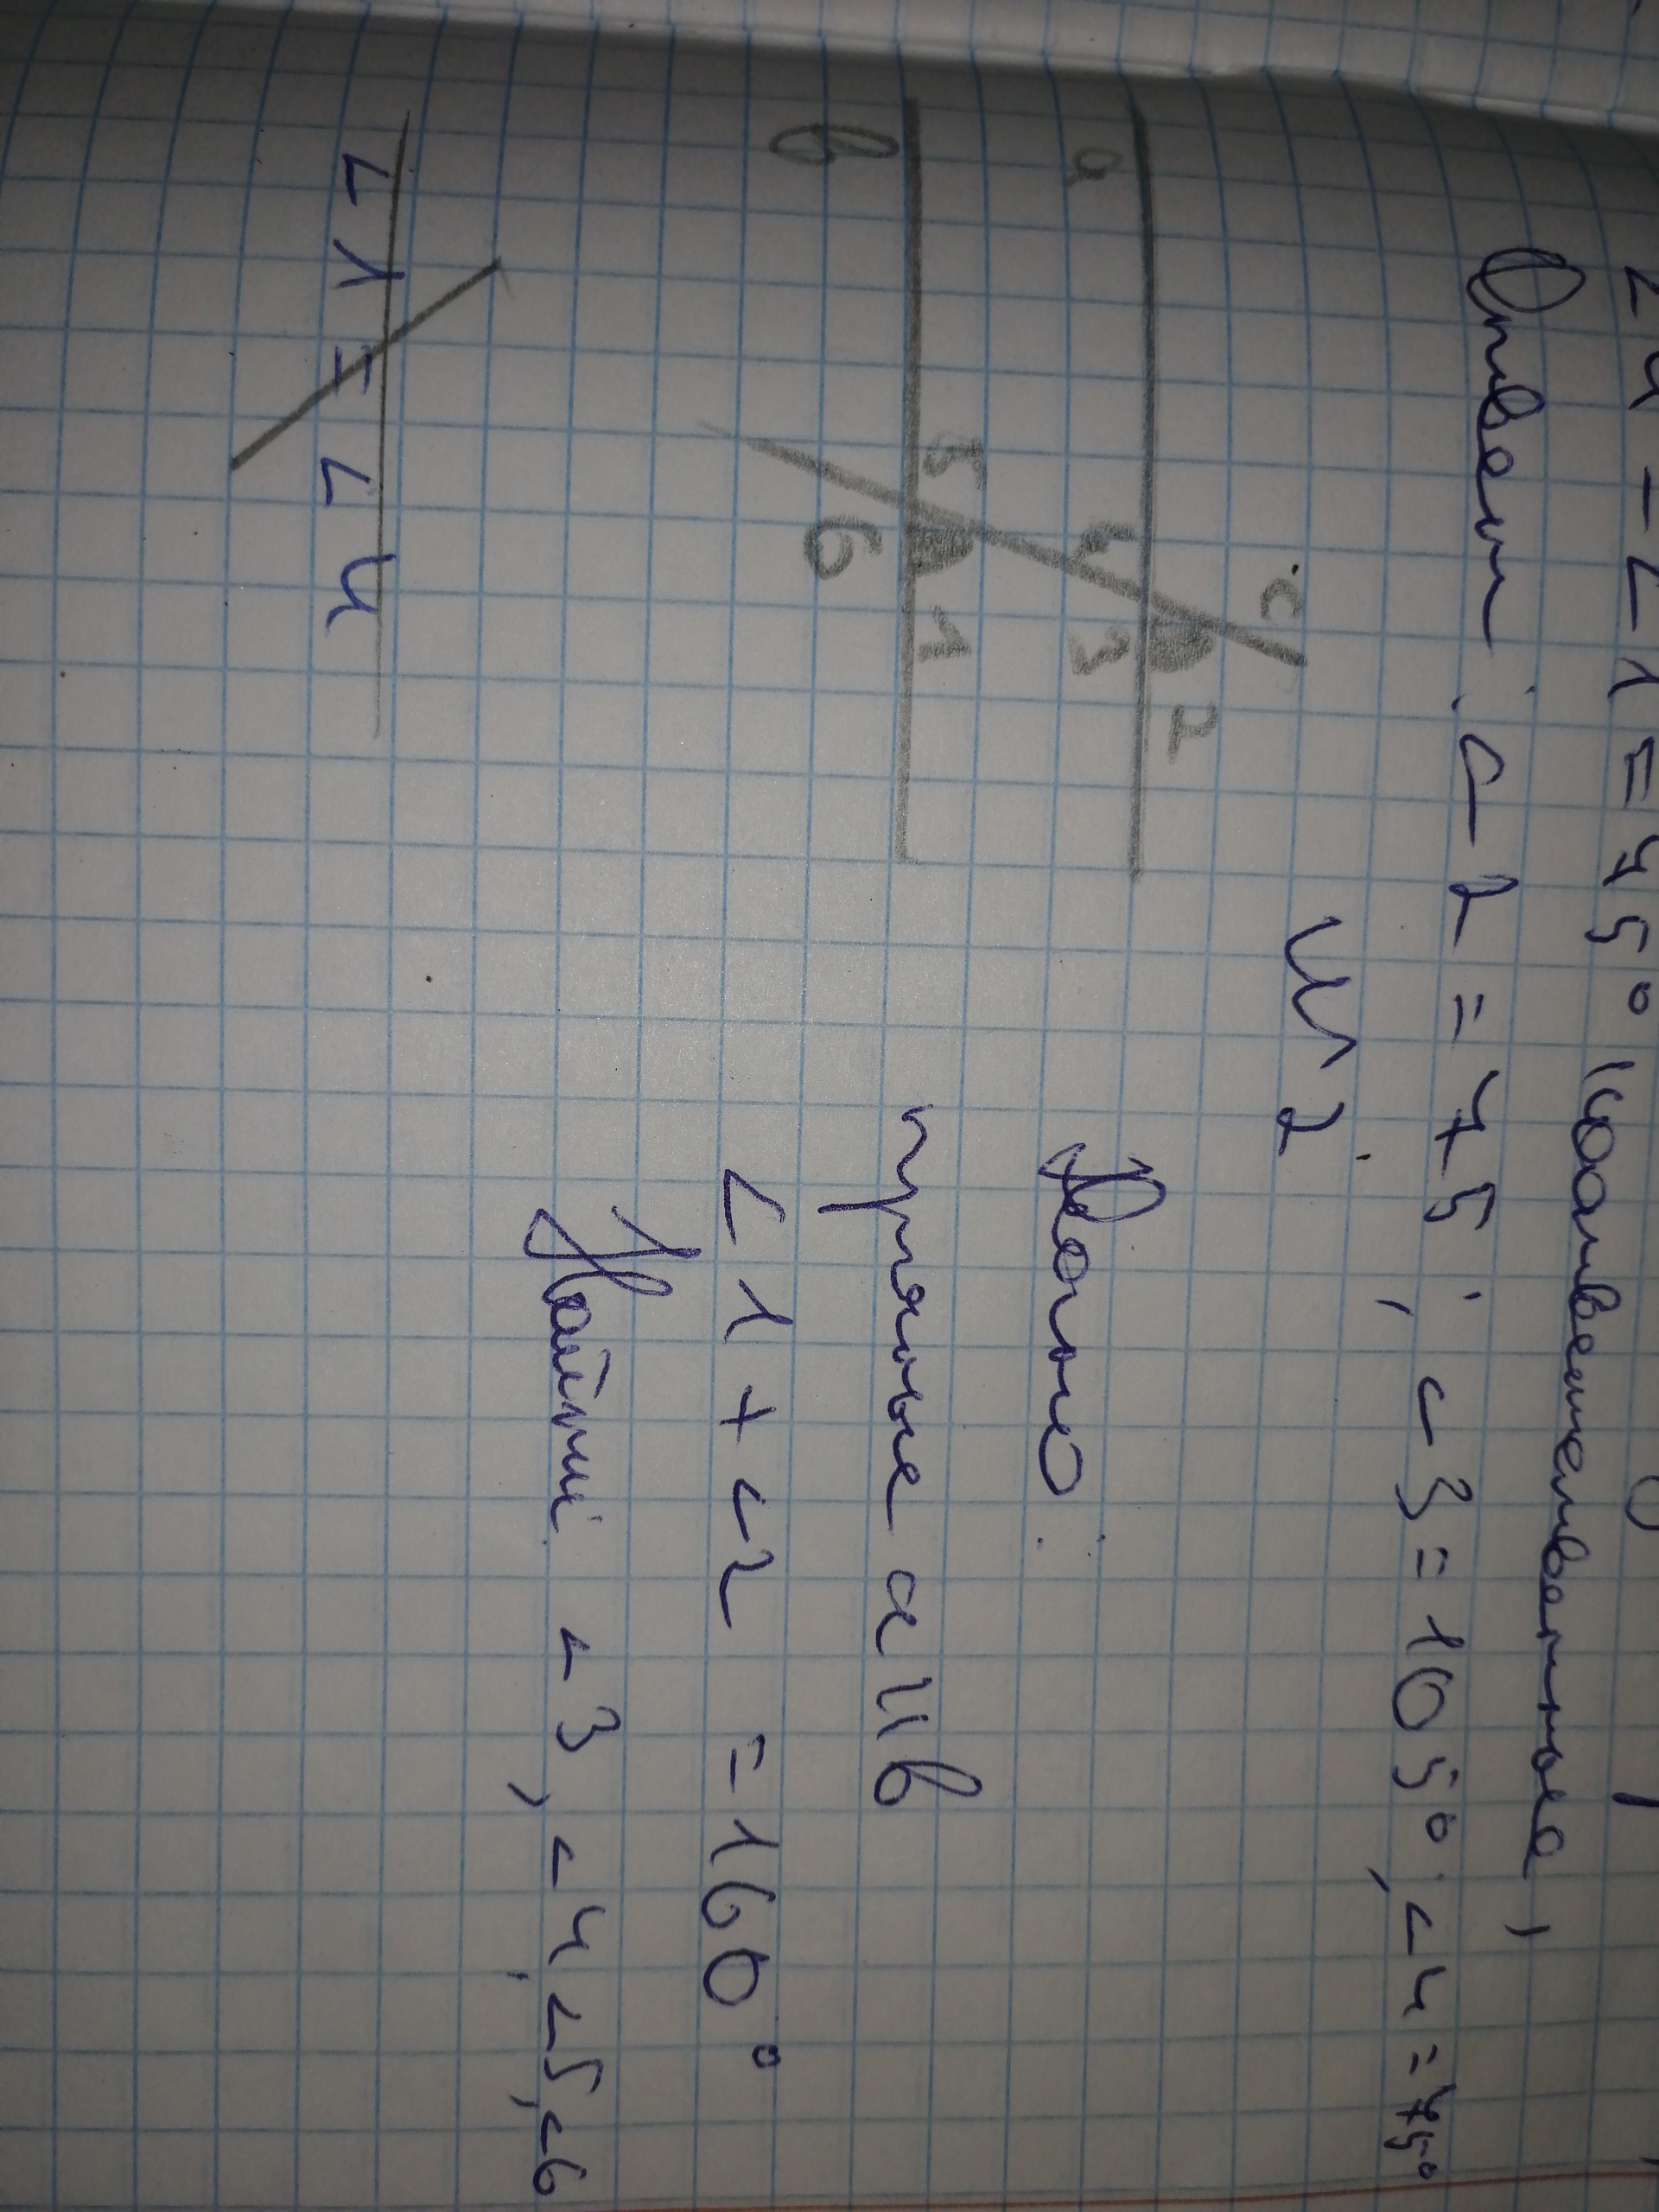 ∠4 = ∠1 = 75° (соответственные)
Ответ: ∠2 = 75°, ∠3 = 105°, ∠4 = 75°
N 2
Дано:
прямые a и b
∠1 + ∠2 = 160°
Найти: ∠3, ∠4, ∠5, ∠6
c
a
2
4
3
b
5
1
6
∠1 = ∠4